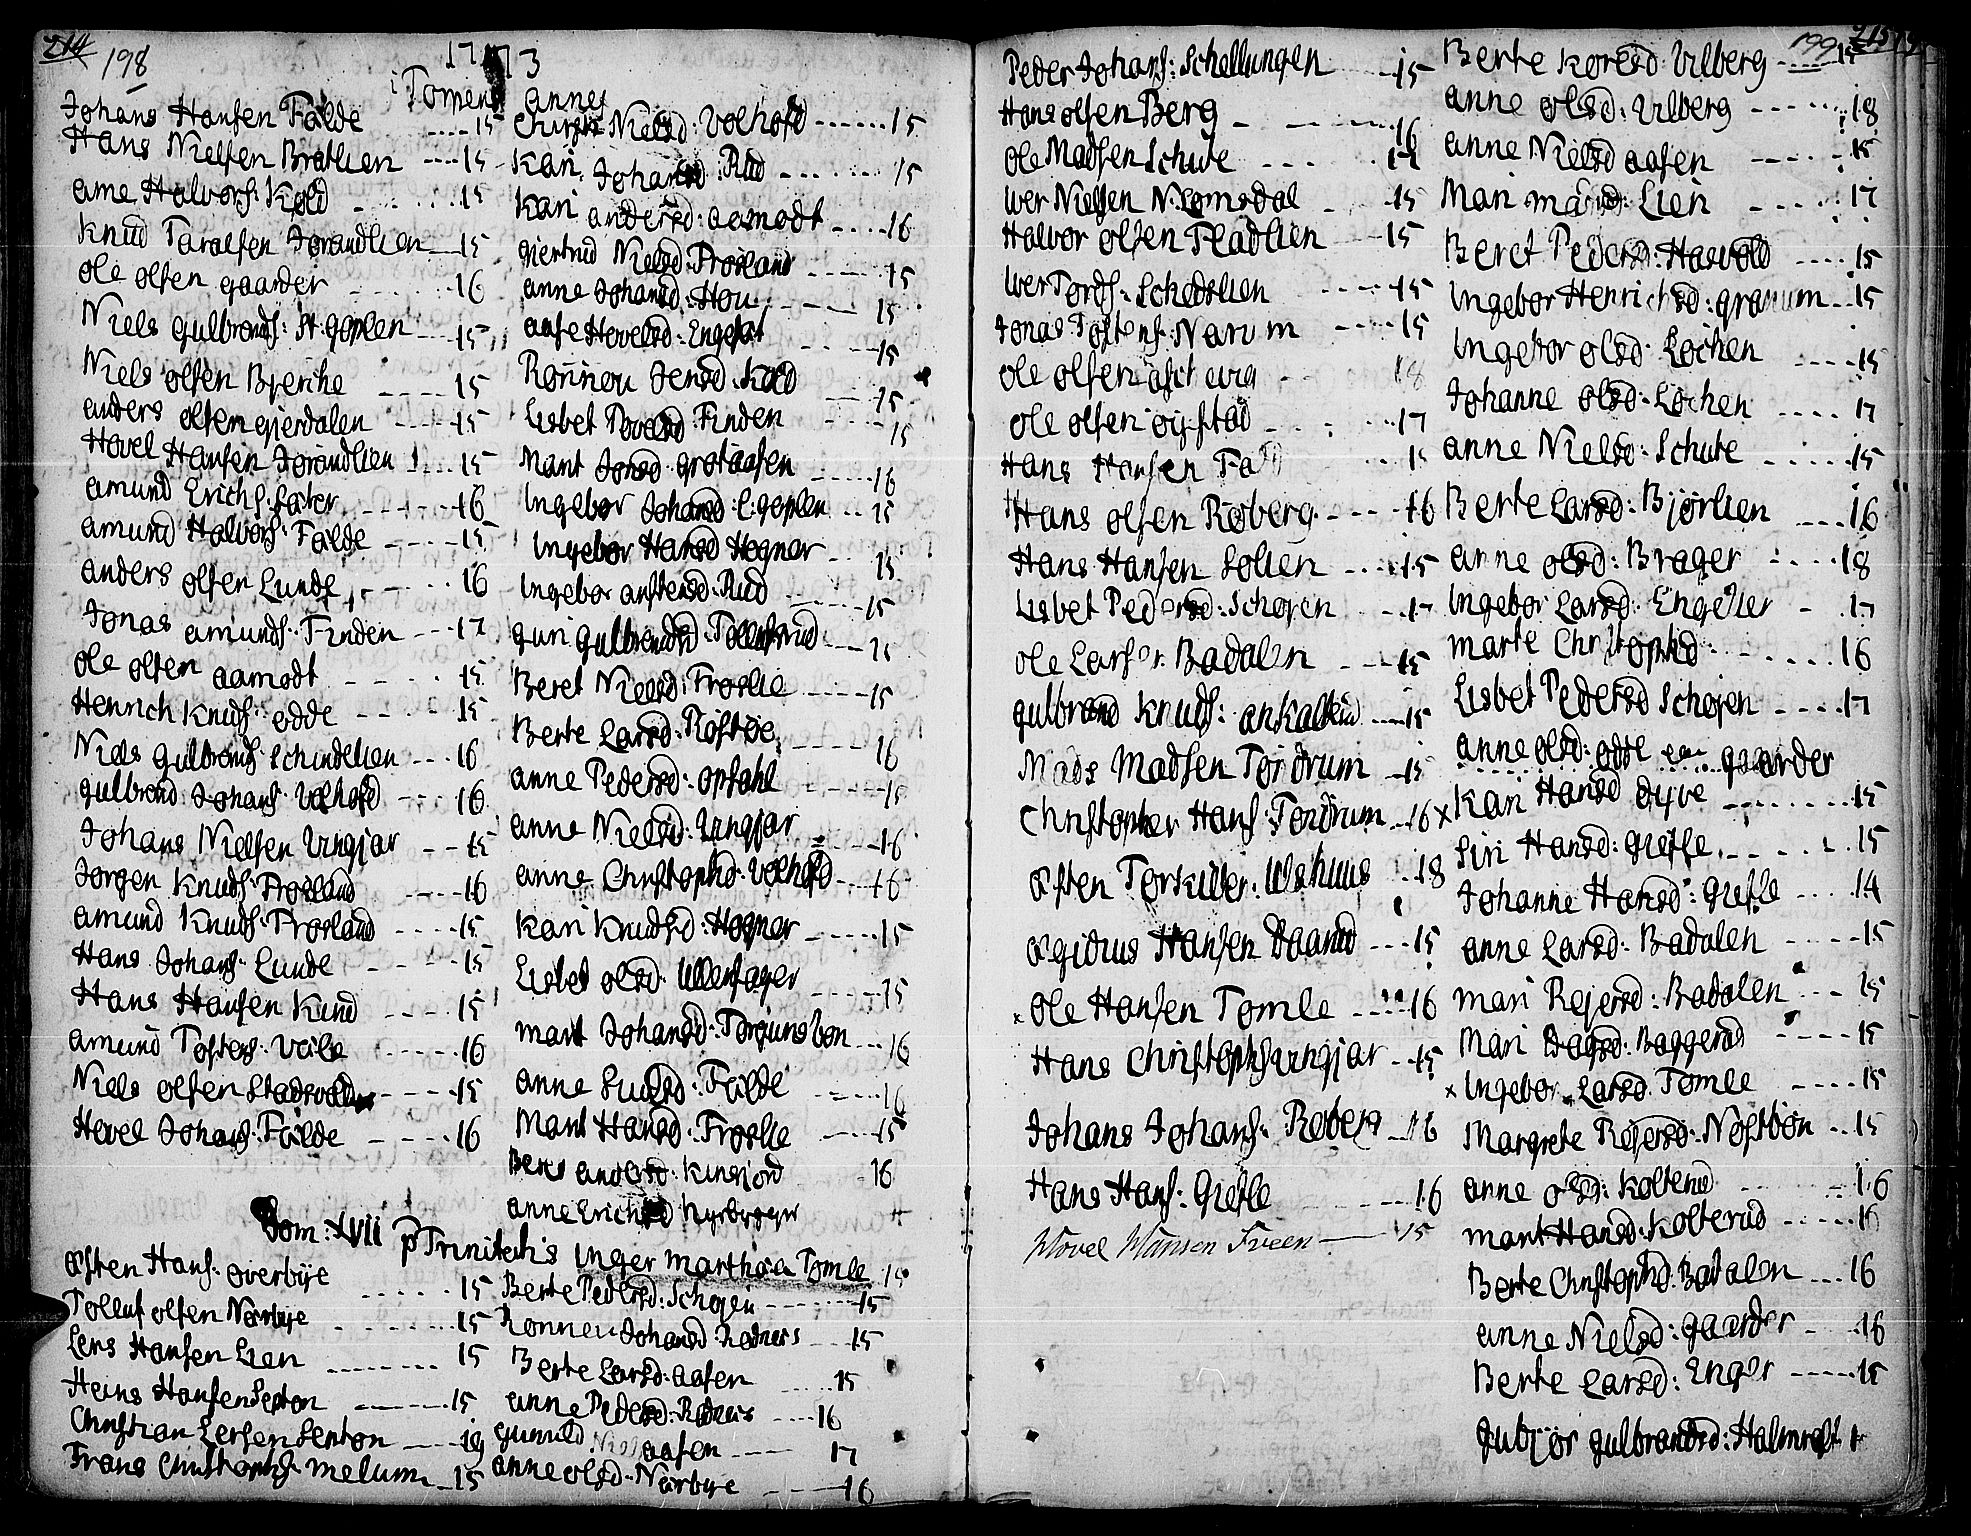 214 198
1773
Johans Hansen Fålde ---- 15
Hans Nielsen Bratlien ---- 15
arne Halvors: Kold - - - 15
Knud Taralsen Jorandlien - 15
ole olsen gaarder - - - 16
Niels gulbrands: N: goplen - - - 15
Niels olsen Brenche - - - - 15
anders olsen gierdalen - - - - 15
Hovel Hansen Jorandlien - - - 15
amund Erichs: Sater - - - 16
amund Halvors: Fålde - - - - 15
anders olsen Lunde - - - 16
Jonas amunds: Finden - - - 17
ole olsen aamodt - - - - 15
Henrich Knuds: odde - - - - 15
Niels gulbrands: Schindellien - - - 16
gulbrand Johans: Volhofd - - - 16
Johans Nielsen Ungjar - - 15
Jorgen Knuds: Frosland - - - - 16
amund Knuds: Frosland - - - - 15
Hans Johans: Lunde - - - 15
Hans Hansen Rund - - - 15
amund Tosters: Veile - - - - - 16
Niels olsen Stadsvold - - - 15
Hovel Johans: Fålde - - - - 16
Nielsd: Volhofd ------ 15
Kari Johansd: Rud - - - - - - 15
Kari andersd: aamodt - - - - 16
giertrud Nielsd: Frosland - - - - - 15
anne Johansd: Hou - - - - - 15
aase Hovelsd: Engeset - - - - 15
Ronnou Jensd: Kold - - - - 15
Lisbet Povelsd Finden 15
Marit Jonsd: grotaasen - - - - 16
Ingebor Johansd: L: goplen - - 15
Ingebor Hansd Hogner - - - 15
Ingebor anstensd: Rud - - - - 15
guri gulbrandsd: Tollefsrud - - 15
Beret Nielsd: Froslie - - - - - 15
Berte Larsd: Rostøe - - - - 16
anne Pedersd: opsahl - - - - 15
anne Nielsd: Ungjar - - - 16
anne Christophd: Volhofd - - 16
Kari Knudsd: Hogner - - - - 15
Lisbet olsd: Ullensager - - - - 15
marit Johansd: Torjunsbøn - - - 16
anne Siversd: Fålde - - - 16
Marit Hansd: Froslie - - - 15
Beret andersd: Kinsjord - - 16
anne Erichsd
Dom: XVII p Trinitatis
Østen Hans: overbye - - - - - 15
Tolluf olsen Nørbye - - - - - 15
Lens Hansen Lien - - - - - - 15
Heins Hansen Lenton - - - - - - 15
Christian Lersen Lenton - - - 19
Frans Christophs: melum - 15
Inger marthea Tomle 15
Berte Pedersd: Schojen - - - - - - 15
Ronneu Johansd: Rodnes - - - 15
Berte Larsd: aasen - - - - 15
anne Pedersd: Rodnes - - - - 16
gunild aasen - - - 17
anne olsd: Nørbye - - - - 16
199 215
Peder Johans: Schellungen - 15
Hans olsen Berg - - - - 16
ole Madsen Schute - - - - 17
Iver Nielsen N: Lomsdal - 15
Halvor olsen Fladlien - - - 15
Iver Tords: Schedslien - - - - 15
Jonas Tostens: Narum - - - - 15
ole olsen - - 18
ole olsen oystad - - - 17
Hans Hansen 15
Hans olsen Roberg - - - - 16
Hans Hansen Solien - - - - 15
Lisbet Pedersd: Schojen - - 17
ole Larsen Badalen - - - 15
gulbrand Knuds: - - - 15
Mads Madsen Tordrum - 15
Christopher Hans: Tordrum - - 16
Østen Torkilder: - - 18
Ægidius Hansen Baanrud - - - 15
× ole Hansen Tomle - - - 16
Hans Christophs: Ungjar - - 15
Johans Johans: Roberg - 16
Hans Hans: Grefle - - - - 16
Hovel Hansen Fveen — 15
Berte Koresd: Vlberg - - - - 15
anne olsd: Vlberg - - - - - 18
anne Nielsd aasen - - - - - 15
Mari mansd: Lien - - - - 17
Beret Pedersd: Hasvold - - - - 15
Ingebor Henrichsd: granum - - 15
Ingebor olsd: Lochen - - - - 15
Johanne olsd: Lochen - - - - 17
anne Nielsd: Schute - - - - 15
Berte Larsd: Bjørlien - - - - 16
anne olsd: Brager - - - 18
Ingebor Larsd: Engelier - 17
marte Christophd: - - - - - 16
Lisbet Pedersd Schojen - - - - 17
anne olsd: odde gaarder
× Kari Hansd Dyve - - - - - - 15
Siri Hansd: Grefle - - - - 15
Johanne Hansd: Grefle - - - 14
anne Larsd: Badalen - - - - - 15
mari Rejersd: Badalen - - - 15
Mari Dagsd: Baggerud - - - - 15
× Ingebor Larsd: Tomle - - - - 15
Margrete Rejersd: Nostbøn - - 15
anne olsd: Kolterud - - - - 16
marit Hansd: Kolterud - - - 16
Berte Christophd: Badalen - - - 16
anne Nielsd: gaarder - - 16
Berte Larsd: Enger - - - - - 15
gubjor gulbrandsd: Halmrast